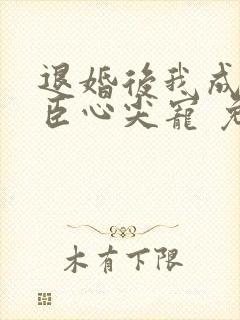 退婚後我成
臣心尖寵
木有下限